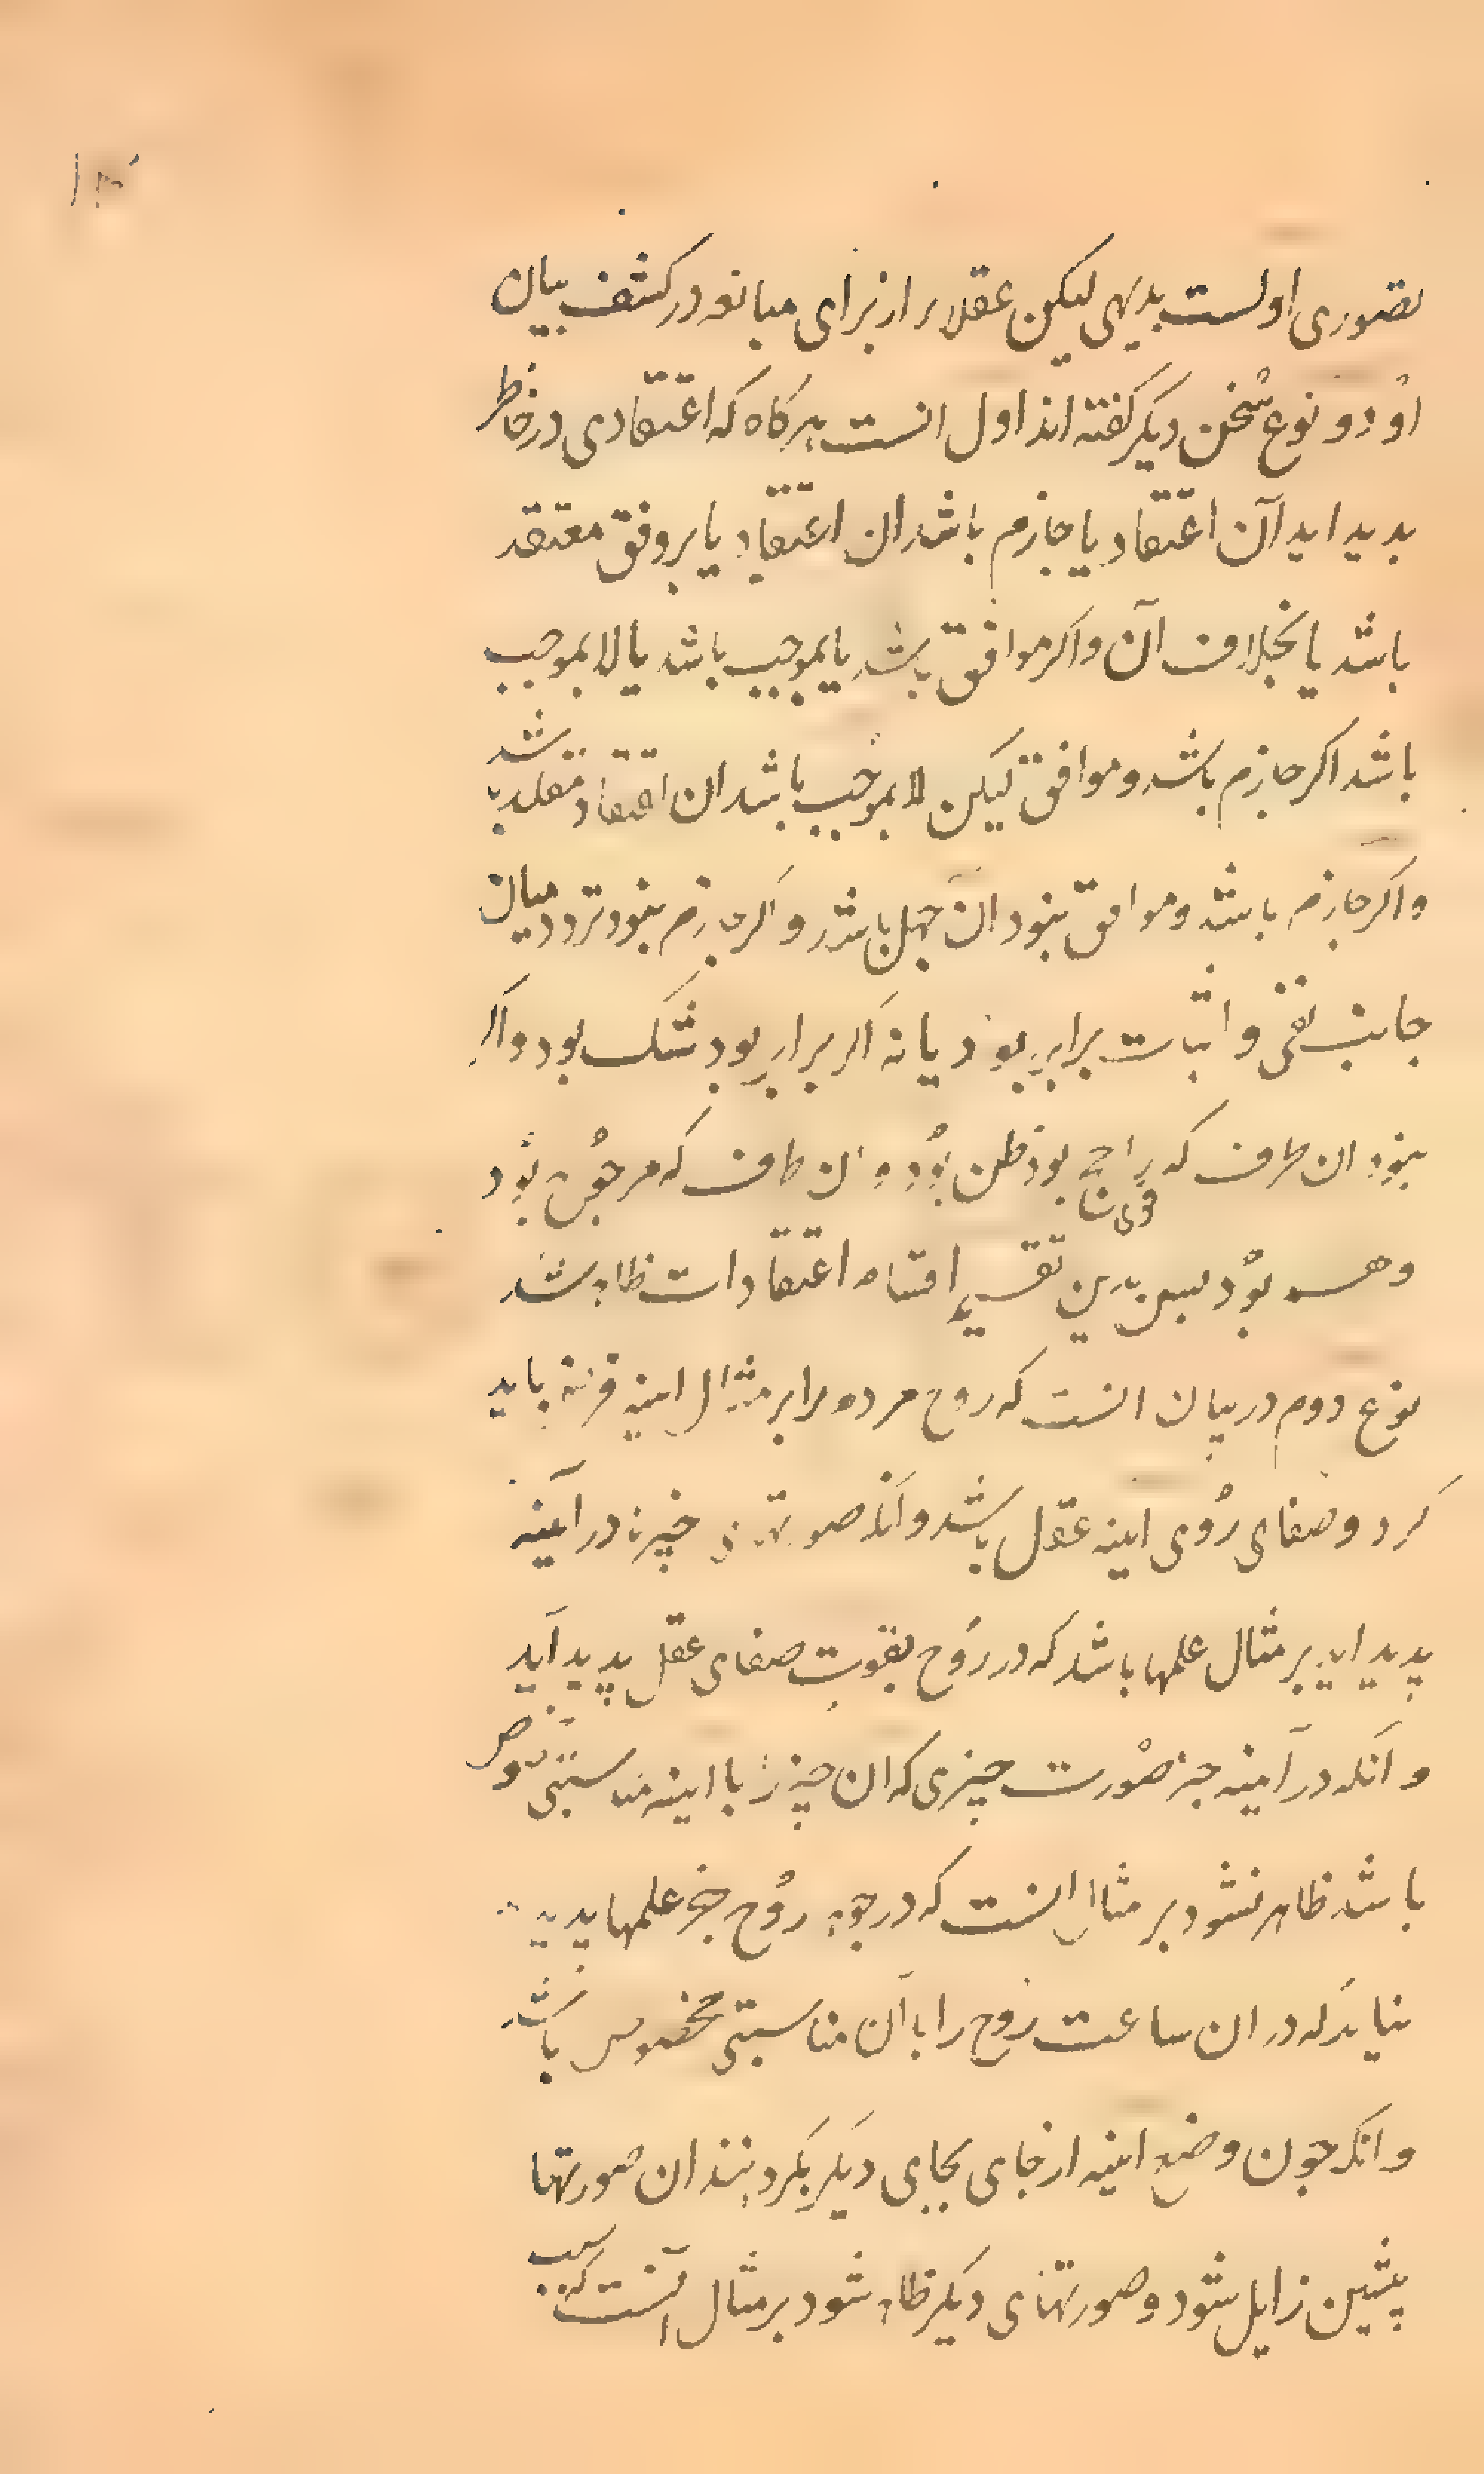 تصوری اولست بدیهی لیکن عقلا را از برای مبالغه در کشف بیان
او دو نوع سخن دیکر کفته اند اول انست هرکاه که اعتقادی در خاطر
بدید اید آن اعتقاد یا جازم باشد ان اعتقاد یا بر وفق معتقد
باشد یا بخلاف آن واکر موافق باشد یا بموجب باشد یا لا بموجب
باشد اکر جازم باشد و موافق لیکن لا بموجب باشد ان اعتقاد مقلد باشد
واکر جازم باشد و موافق نبود ان جهل باشد و اکر جازم نبود تردد میان
جانب نفی و اثبات برابر بود یا نه اکر برابر بود شک بود واکر
نبود ان طرف که راجح بود ظن بود و ان طرف که مرجوح بود
وهم بود پس بدین تقسیم اقسام اعتقادات ظاهر شد
نوع دوم در بیان انست که روح مردم را بر مثال اینه فرض باید
کرد و صفای روی اینه عقل باشد و انکه صورتهای چیزها در آینه
پدید اید بر مثال علمها باشد که در روح بقوت صفای عقل پدید آید
و آنکه در آینه جز صورت چیزی که ان چیز را با اینه مناسبتی و
باشد ظاهر نشود بر مثال انست که در جوهر روح جز علمها پدید
نیاید که در ان ساعت روح را با آن مناسبتی مخصوص باشد
و انکه چون وضع اینه از جای بجای دیکر بکردانند ان صورتها
پیشین زایل شود و صورتهای دیکر ظاهر شود بر مثال آنست که بسبب